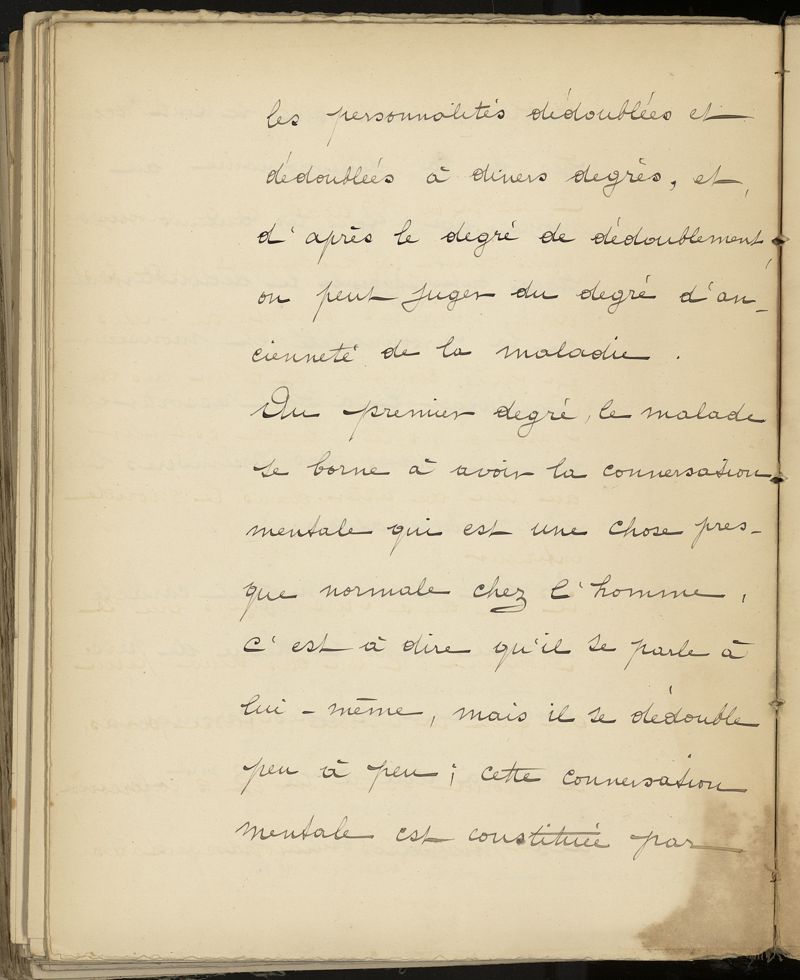 les personnalités dédoublées et
dédoublées à divers degrés, et,
d'après le degré de dédoublement,
on peut juger du degré d'an-
cienneté de la maladie.
Au premier degré, le malade
se borne à avoir la conversation
mentale qui est une chose pres-
que normale chez l'homme,
c'est à dire qu'il se parle à
lui-même, mais il se dédouble
peu à peu; cette conversation
mentale est constituée par